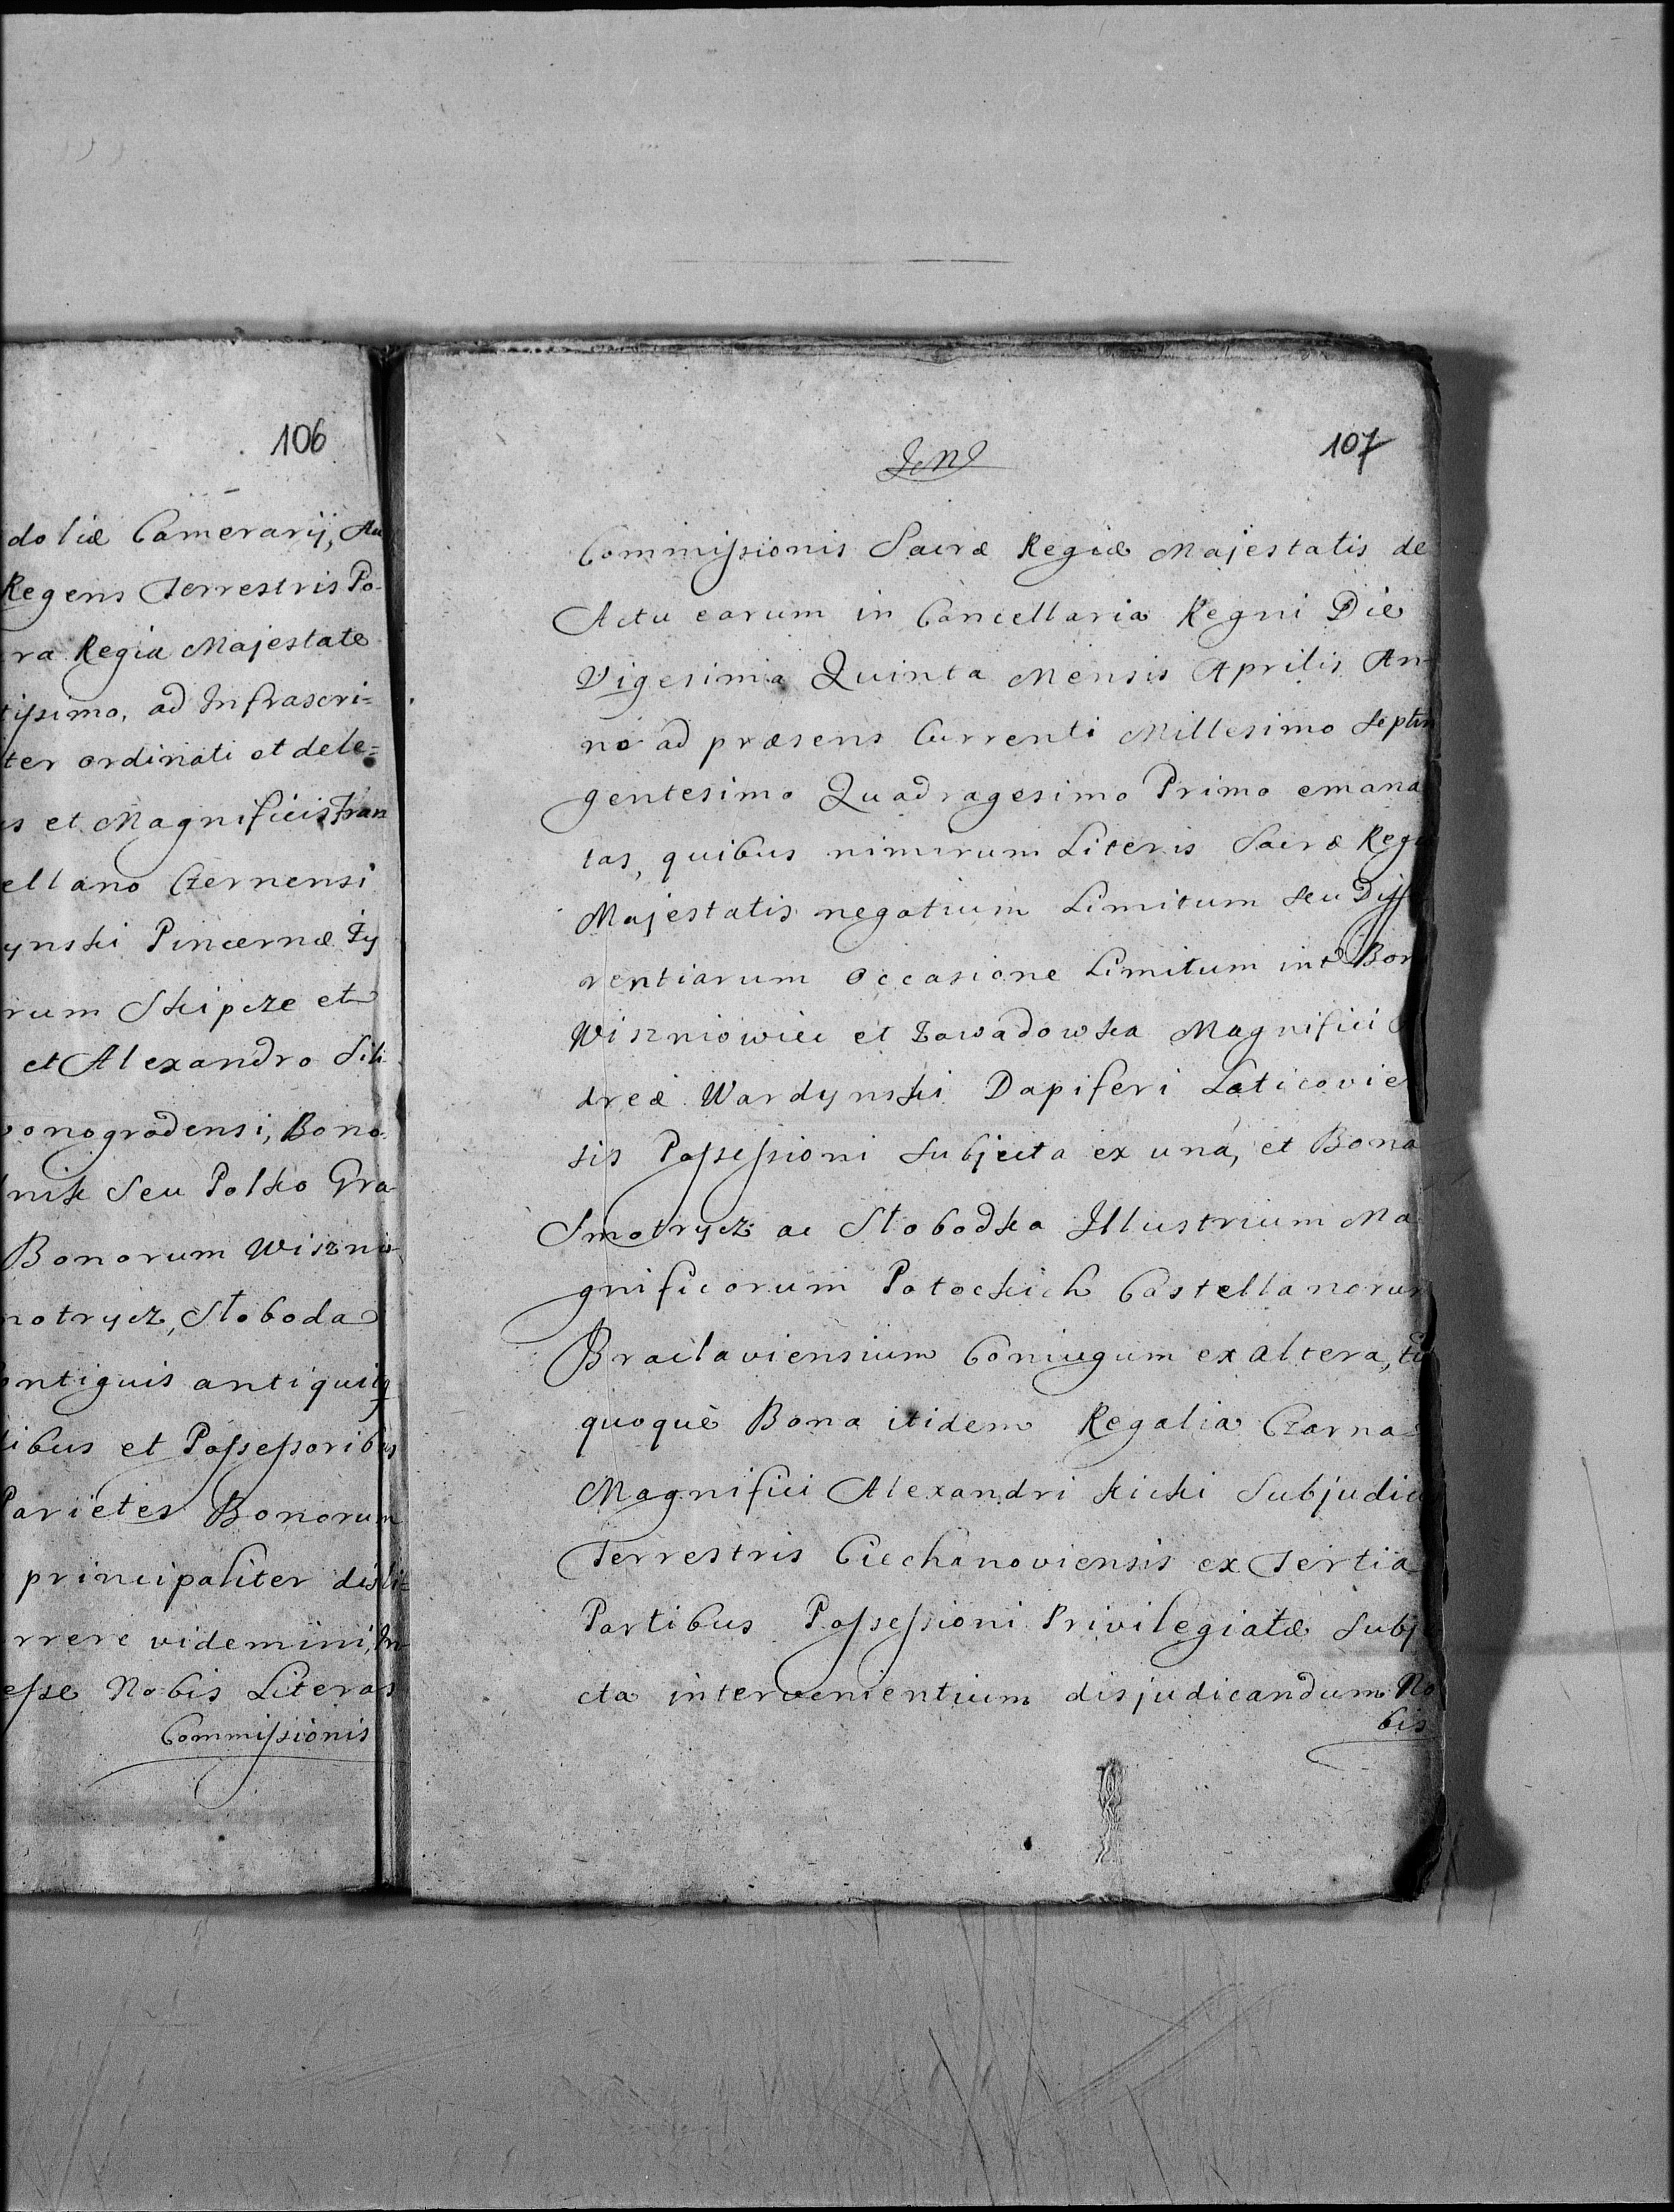 106
doliæ Camerarij, Au
Regens Terrestris Po-
ra Regia Majestate
tissimo, ad Infrascri=
ter ordinati et dele=
is et Magnificis Fran
ellano Czernensi
ynski Pincernæ Ży
rum Skipcze et
et Alexandro Sili
onogrodensi, Bono
nik Seu Polko Gra
Bonorum Wisznio
notrycz, Słoboda
ontiguis antiquitq
tibus et Possessoribus
Parietes Bonorum
principaliter disli=
rrere videmini, In
esse Nobis Literas
Commissionis
107
Commissionis Sacræ Regiæ Majestatis de
Actu earum in Cancellaria Regni Die
Vigesima Quinta Mensis Aprilis An-
no ad præsens Currenti Millesimo Septin
gentesimo Quadragesimo Primo emana
tas, quibus nimirum Literis Sacræ Regi
Majestatis negotium Limitum seu Diff
rentiarum Occasione Limitum int Bon
Wiszniowiec et Zawadowka Magnifici
dreæ Wardynski Dapiferi Laticovien
sis Possessioni Subjecta ex una, et Bona
Smotrycz ac Słobodka Illustrium Ma
gnificorum Potockich Castellanorum
Braclaviensium Coniugum ex altera, tu
quoque Bona itidem Regalia Czarna
Magnifici Alexandri Kicki Subjudic
Terrestris Ciechanoviensis ex Tertia
Partibus Possessioni Privilegiatæ Subje
cta intervenientium disjudicandum No
bis